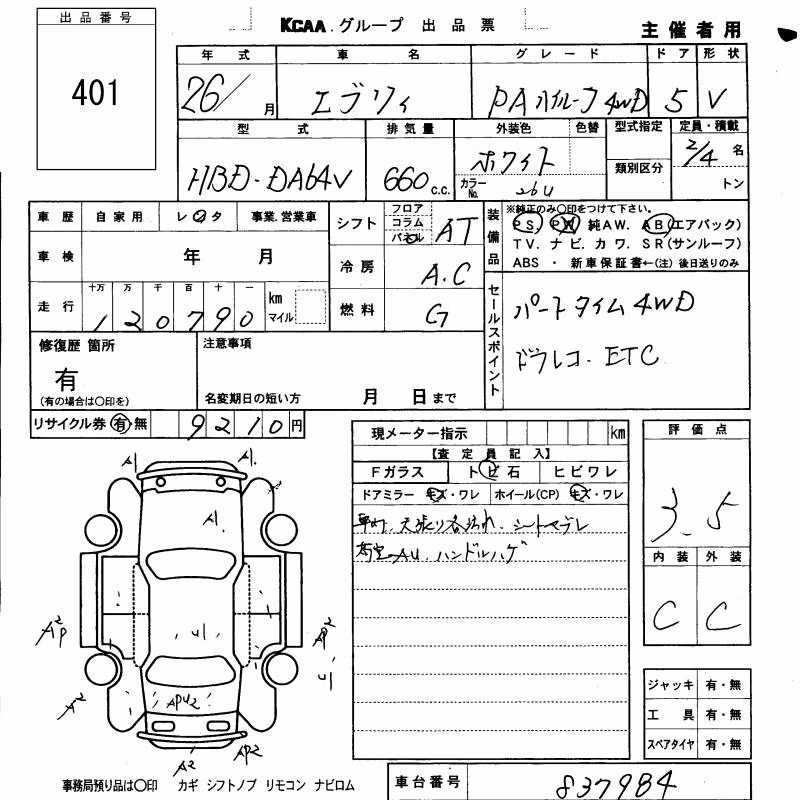 出品番号
401
KCAA.グループ 出品票
主催者用
年式 車名 グレード ドア 形状
26/ 月 エブリィ PA ハイルーフ 4WD 5 V
型式 排気量 外装色 色替 型式指定 定員・積載
HBD-DA64V 660 C.C. ホワイト
カラーNo. 26U
類別区分
2/4 名
トン
車歴 自家用 レンタ 事業.営業車
車検 年 月
走行 十万 万 千 百 十 一
120790 km マイル
シフト フロア コラム パネル AT
冷房 A.C
燃料 G
装備品
※純正のみ〇印をつけて下さい。
PS. PW 純AW. AB(エアバック)
TV. ナビ. カワ. SR(サンルーフ)
ABS ・ 新車保証書←(注)後日送りのみ
セールスポイント
パートタイム4WD
ドラレコ. ETC
修復歴 箇所
有
(有の場合は〇印を)
注意事項
名変期日の短い方 月 日まで
リサイクル券 有 無 9210円
現メーター指示 km
【査定員記入】
Fガラス トビ石 ヒビワレ
ドアミラー キズ・ワレ ホイール(CP) キズ・ワレ
シートヤブレ
AU. ハンドルハゲ
評価点
3.5
内装 外装
C C
ジャッキ 有・無
工具 有・無
スペアタイヤ 有・無
A1 A1.
A1.
U1
AP2 AP2
U1
A2
APU2
A2 AP2
事務局預り品は〇印 カギ シフトノブ リモコン ナビロム
車台番号 837984